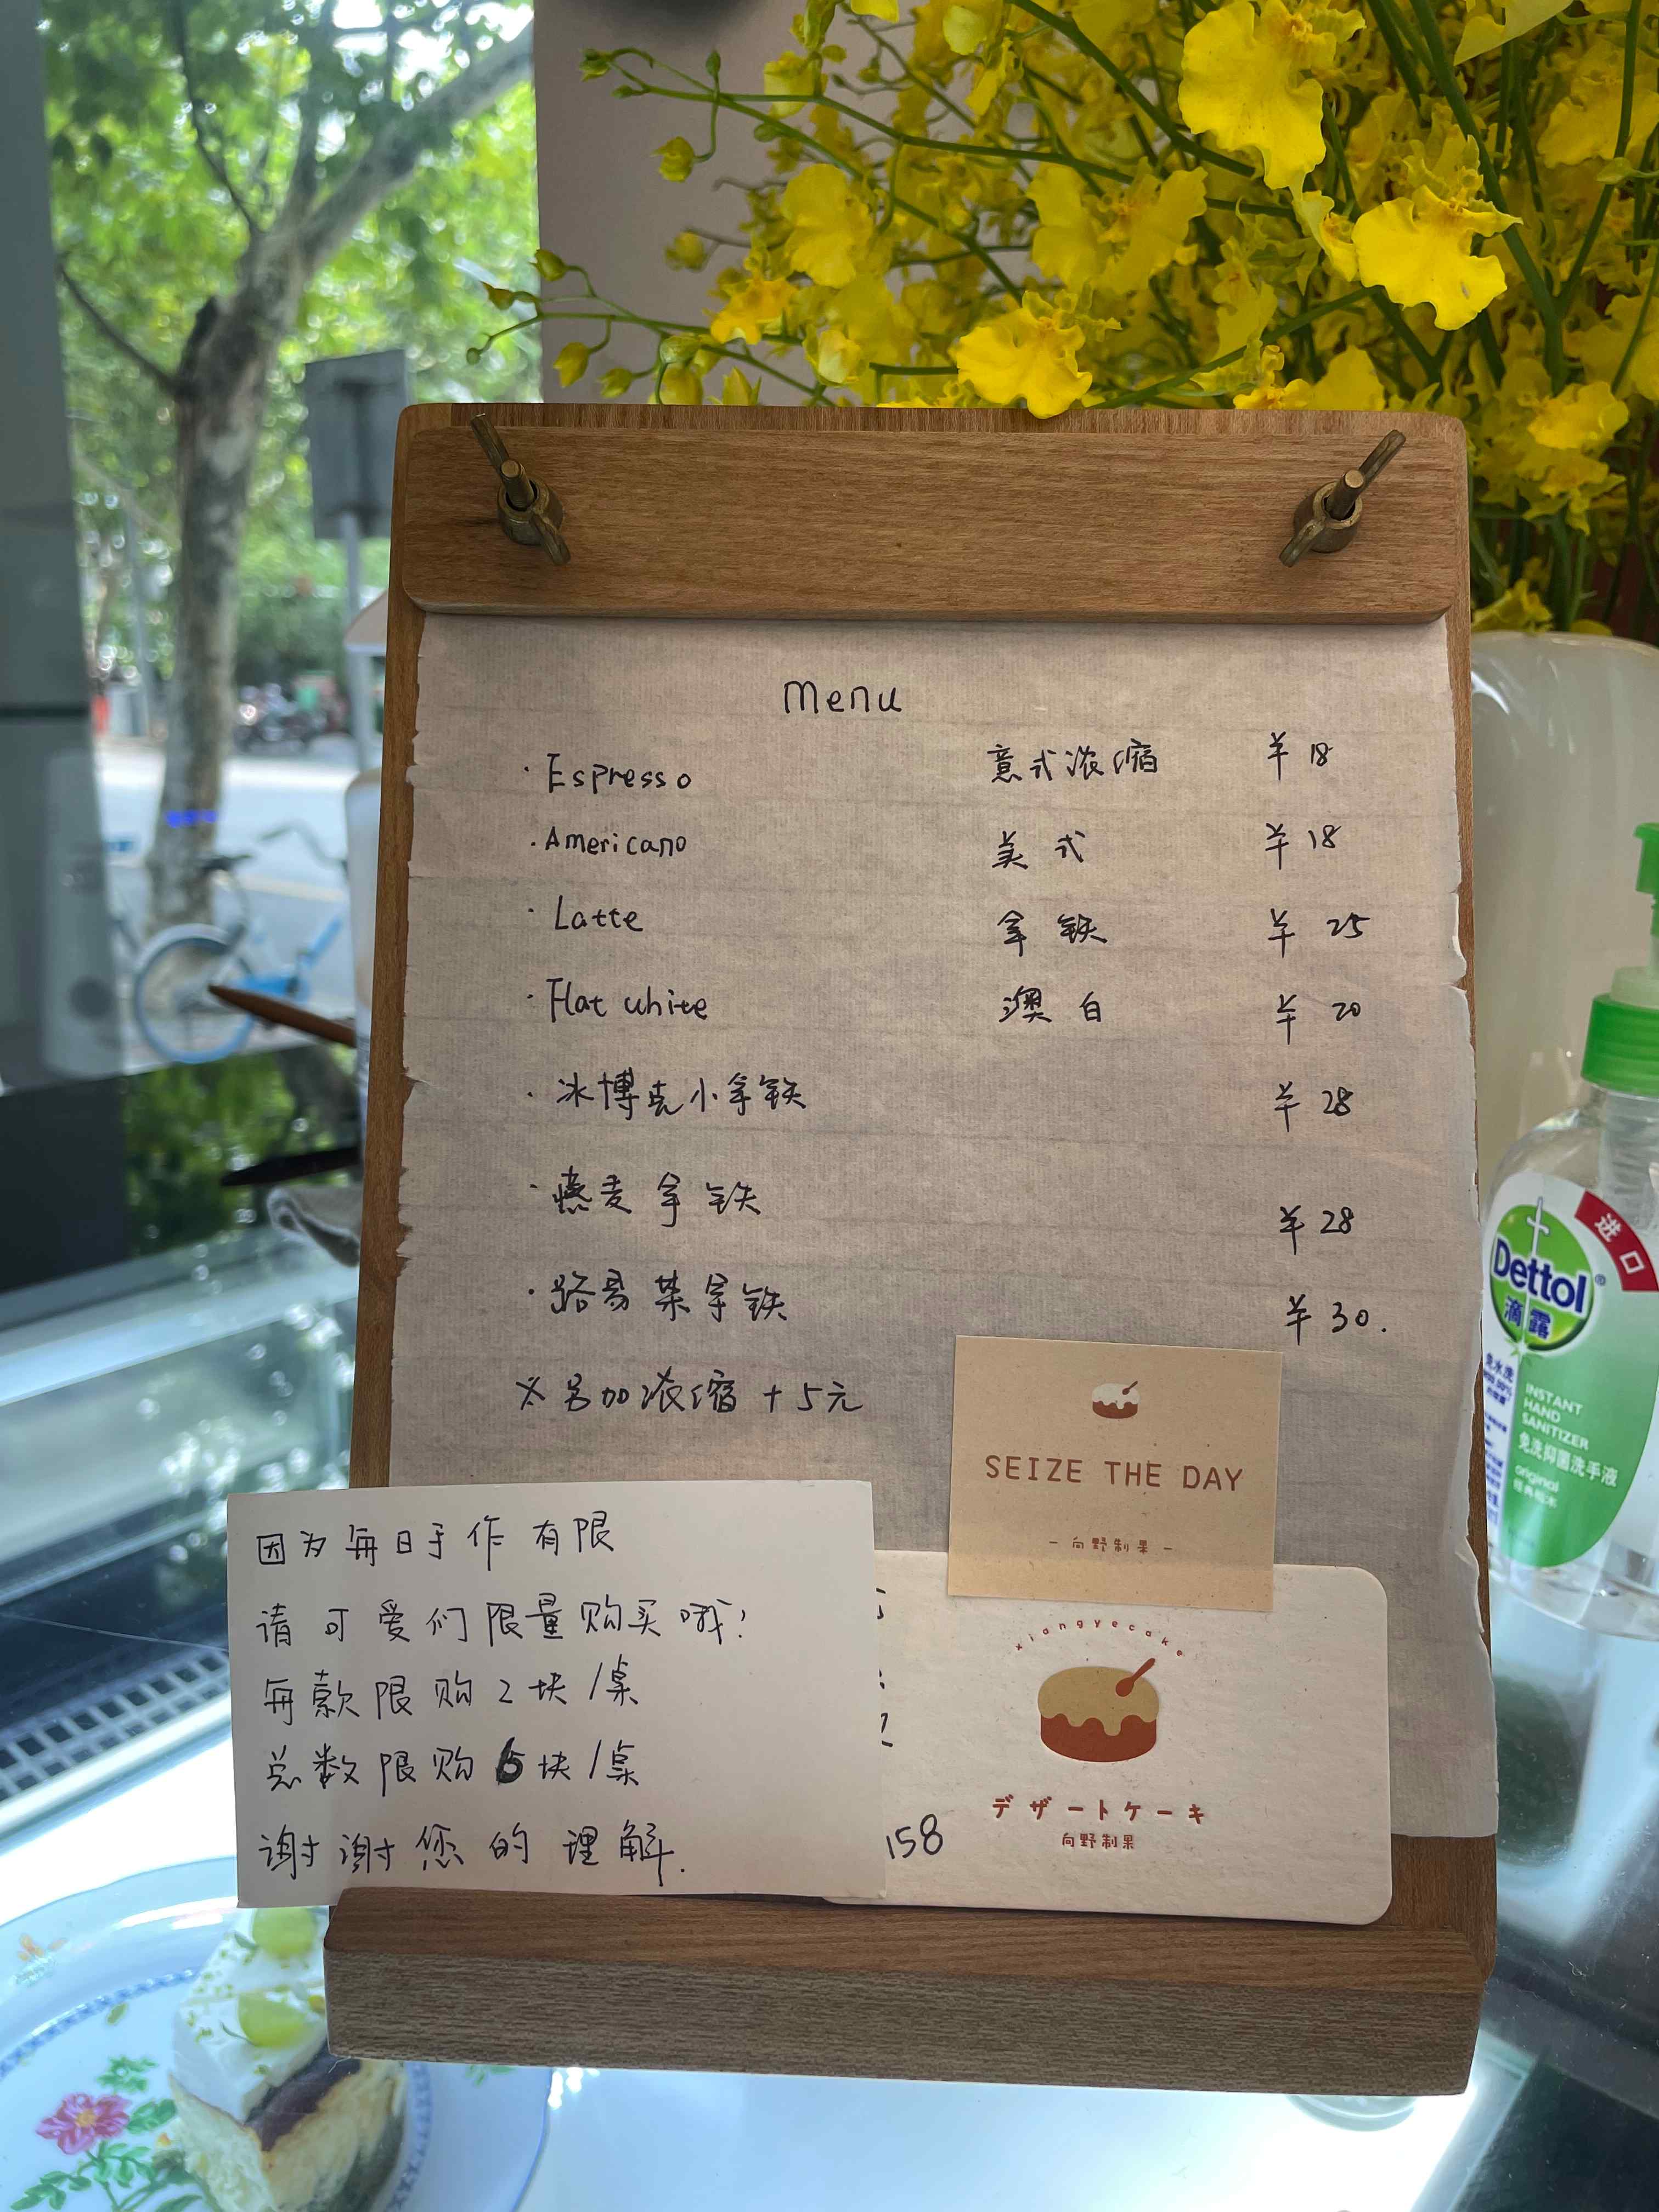 Menu
· Espresso 意式浓缩 ¥ 18
· Americano 美式 ¥ 18
· Latte 拿铁 ¥ 25
· Flat white 澳白 ¥ 20
· 冰博克小拿铁 ¥ 28
· 燕麦拿铁 ¥ 28
· 路易茶拿铁 ¥ 30.
※ 另加浓缩 +5元
SEIZE THE DAY
- 向野制果 -
因为每日手作有限
请可爱们限量购买哦!
每款限购2块/桌
总数限购6块/桌
谢谢您的理解.
xiangyecake
デザートケーキ
向野制果
158
进口
Dettol®
滴露
免水洗
INSTANT
HAND
SANITIZER
免洗抑菌洗手液
original